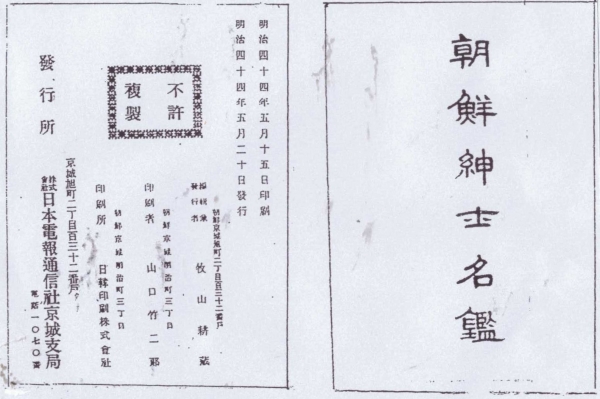 朝鮮紳士名鑑
明治四十四年五月十五日印刷
明治四十四年五月二十日發行
不許
複製
朝鮮京城旭町二丁目百三十二番戶
編輯兼
發行者
牧山耕藏
朝鮮京城明治町三丁目
印刷者 山口竹二郎
朝鮮京城明治町三丁目
印刷所 日韓印刷株式會社
發行所
京城旭町二丁目百三十二番戶
株式
會社
日本電報通信社京城支局
電話一〇七〇番